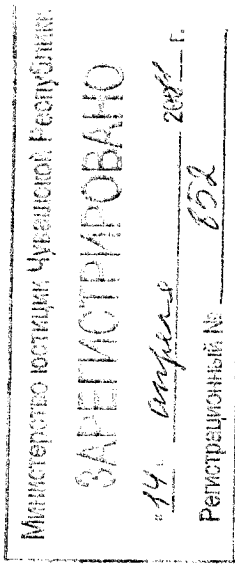 Министерство юстиции Чувашской Республики
ЗАРЕГИСТРИРОВАНО
"14" апреля 200 г.
Регистрационный № 852